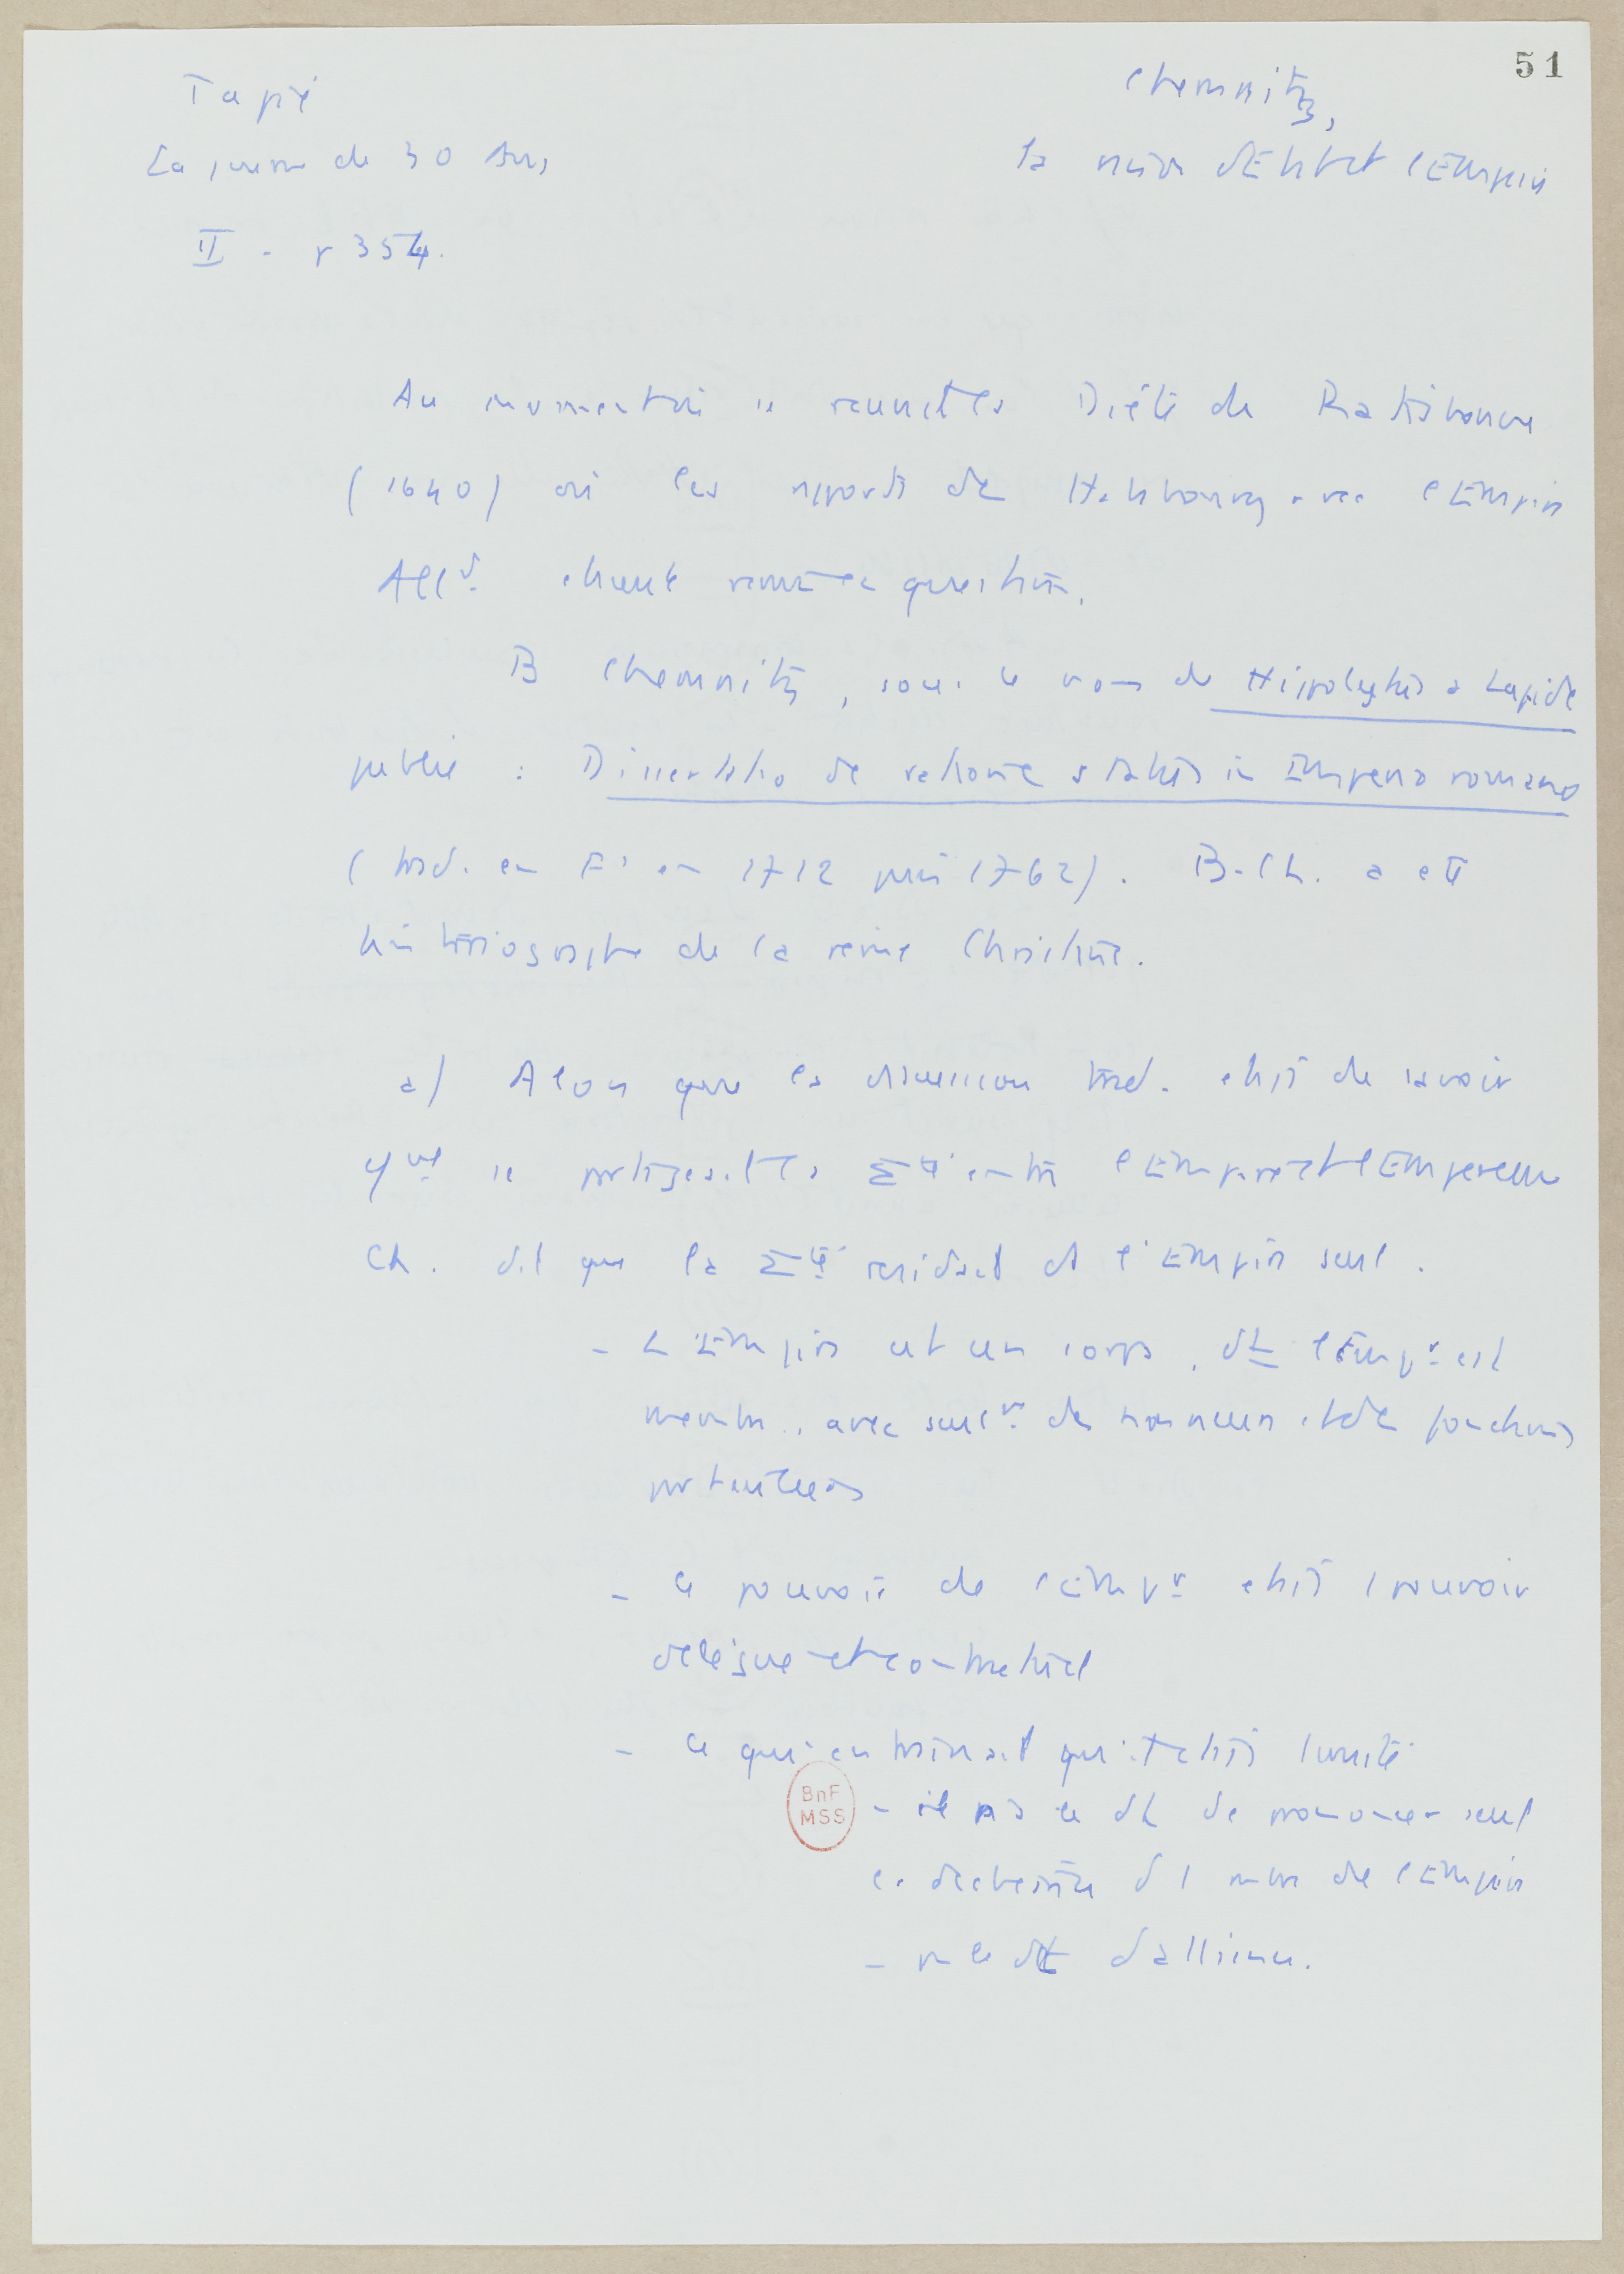 51
Tapié
La guerre de 30 Ans
II - p 354.
Chemnitz,
la raison d'Etat et l'Empire
Au moment où se réunit la Diète de Ratisbonne
(1640) où les rapports de Habsbourg avec l'Empire
All^d. étaient remis en question.
B Chemnitz, sous le nom de Hippolythus a Lapide
publie : Dissertatio de ratione status in Imperio romano
(trad. en F^s en 1712 puis 1762). B. Ch. a été
historiographe de la reine Christine.
a) Alors que la discussion trad. était de savoir
se partageait la Σ^té entre l'Empire et l'Empereur
Ch. dit que la Σ^té résidait ds l'Empire seul.
- L'Empire est un corps, dt l'Emp^r est
membre, avec seul^t des honneurs et de fonctions
particulières
- le pouvoir de l'Emp^r était 1 pouvoir
délégué et contractuel
- ce qui entraînait qu'il était limité
BnF
MSS
- il n'a pas le dt de prononcer seul
la déchéance d'1 mbre de l'Empire
- ni le dt d'alliance.